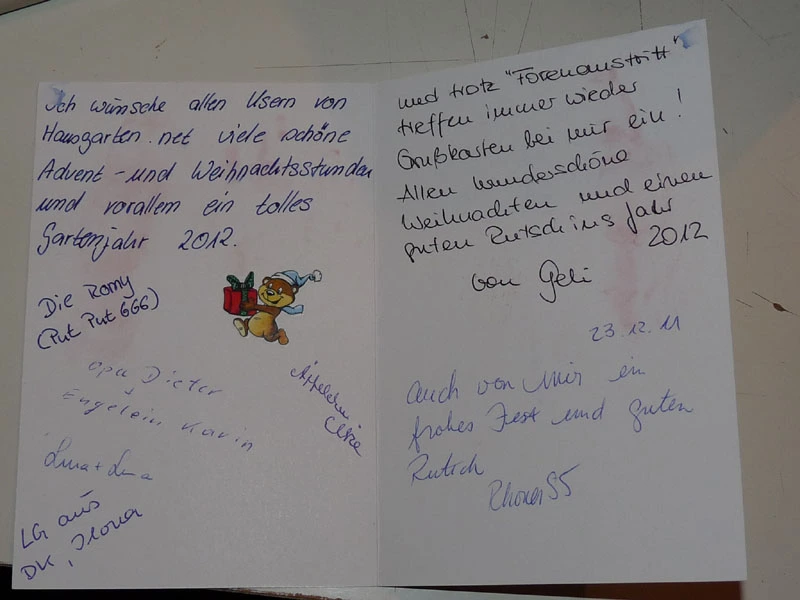 Ich wünsche allen Usern von
Hausgarten.net viele schöne
Advent - und Weihnachtsstunden
und vorallem ein tolles
Gartenjahr 2012.
Die Romy
(Put Put 666)
Opa Dieter
+
Engelein Karin
LG aus
DK, Ilona
und trotz "Forenaustritt"
treffen immer wieder
Grußkarten bei mir ein!
Allen wunderschöne
Weihnachten und einen
guten Rutsch ins Jahr
2012
von Geli
23.12.11
auch von mir ein
frohes Fest und guten
Rutsch